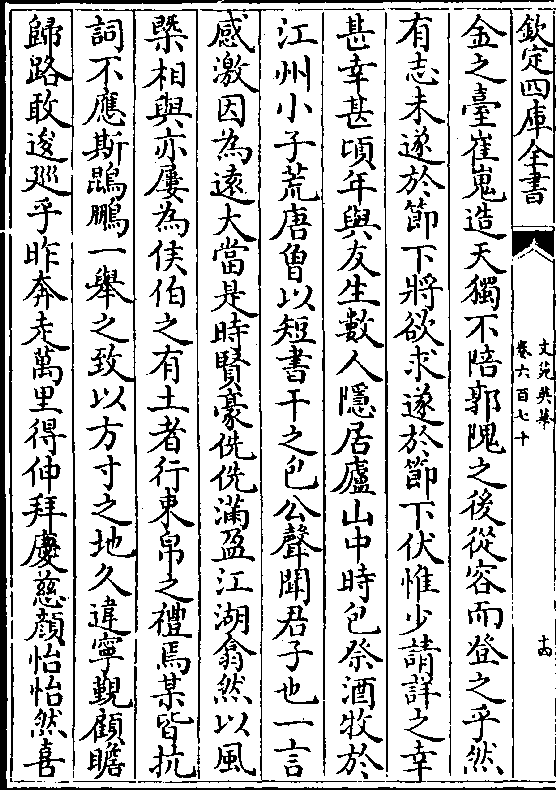 欽定四庫全書
文苑英華
卷六百七十
十四
金之臺崔嵬造天獨不陪郭隗之後從容而登之乎然
有志未遂於節下將欲求遂於節下伏惟少請詳之幸
甚幸甚頃年與友生數人隱居廬山中時包祭酒牧於
江州小子荒唐曾以短書干之包公聲聞君子也一言
感激因為遠大當是時賢豪侁侁滿盈江湖翕然以風
槩相與亦屢為侯伯之有土者行束帛之禮焉某皆抗
詞不應斯鵾鵬一舉之致以方寸之地久違寧覲顧瞻
歸路敢逡廵乎昨奔走萬里得伸拜慶慈顔怡怡然喜